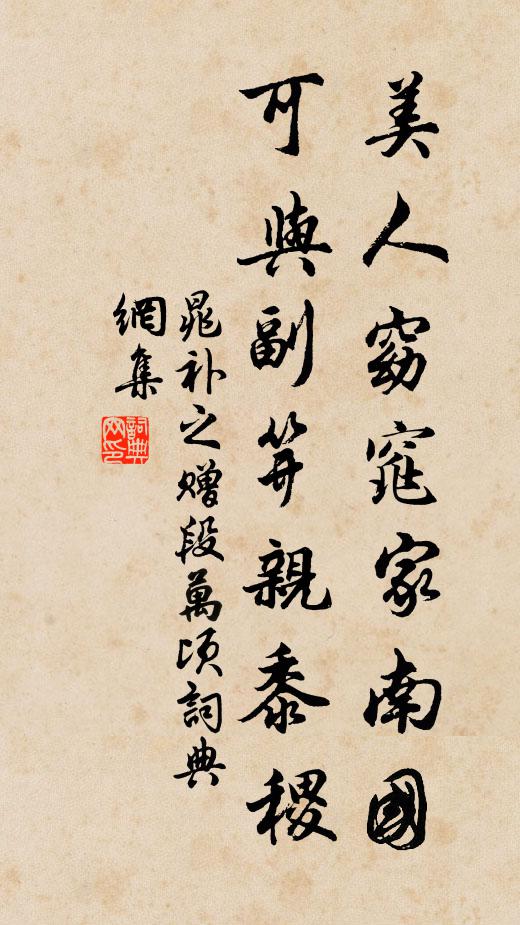 美人窈窕家南國
可與副笄親黍稷
晁补之赠段萬顷詞典
網集
詞典网印